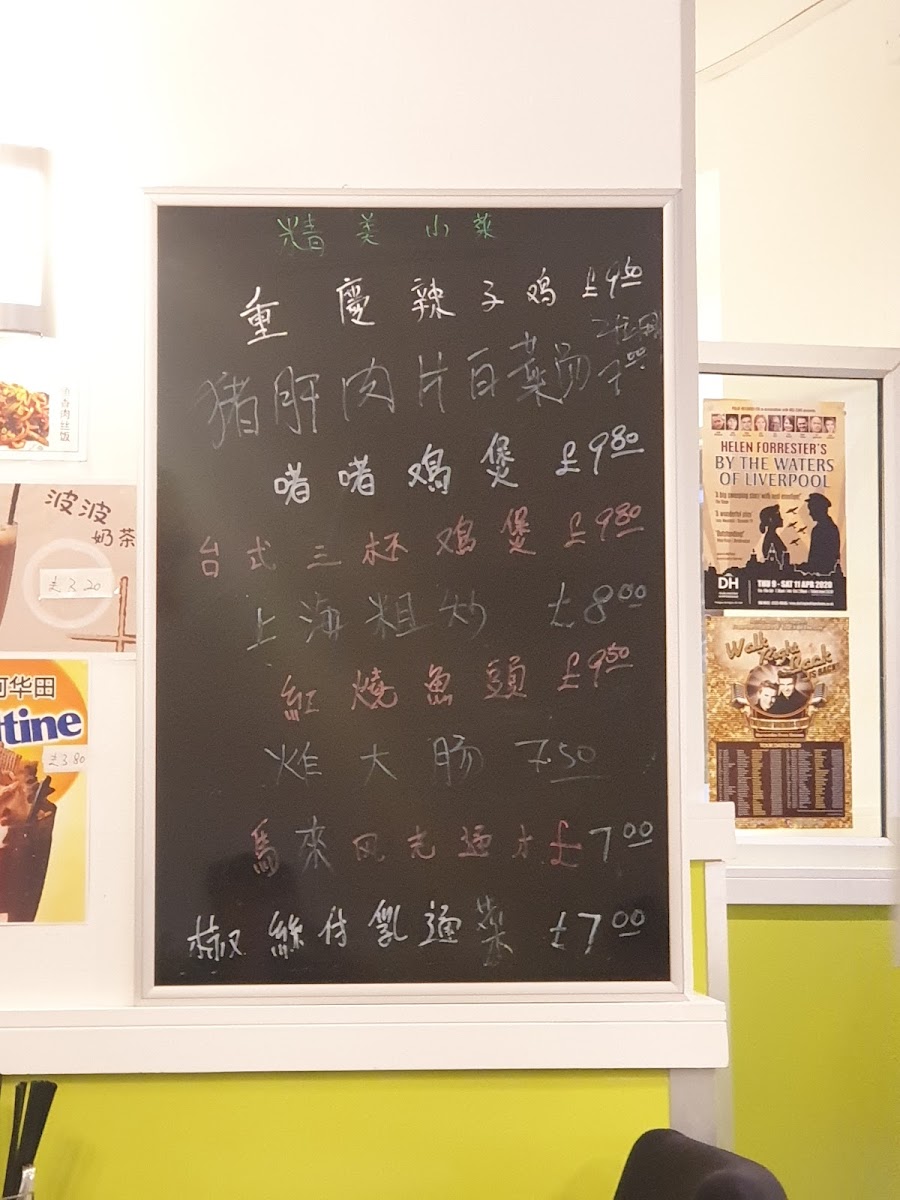 精美小菜
重慶辣子鸡 £9.50
猪肝肉片白菜汤 7.00
啫啫鸡煲 £9.80
台式三杯鸡煲 £9.80
上海粗炒 £8.00
紅燒魚頭 £9.50
炸大肠 7.50
馬來风光通 £7.00
椒絲付乳通菜 £7.00
肉丝饭
波波
奶茶
£3.20
华田
tine
£3.80
HELEN FORRESTER'S
BY THE WATERS
OF LIVERPOOL
'A wonderful play'
'Outstanding'
DH
THU 9 - SAT 11 APR 2020
Walk Right Back
IS BACK!